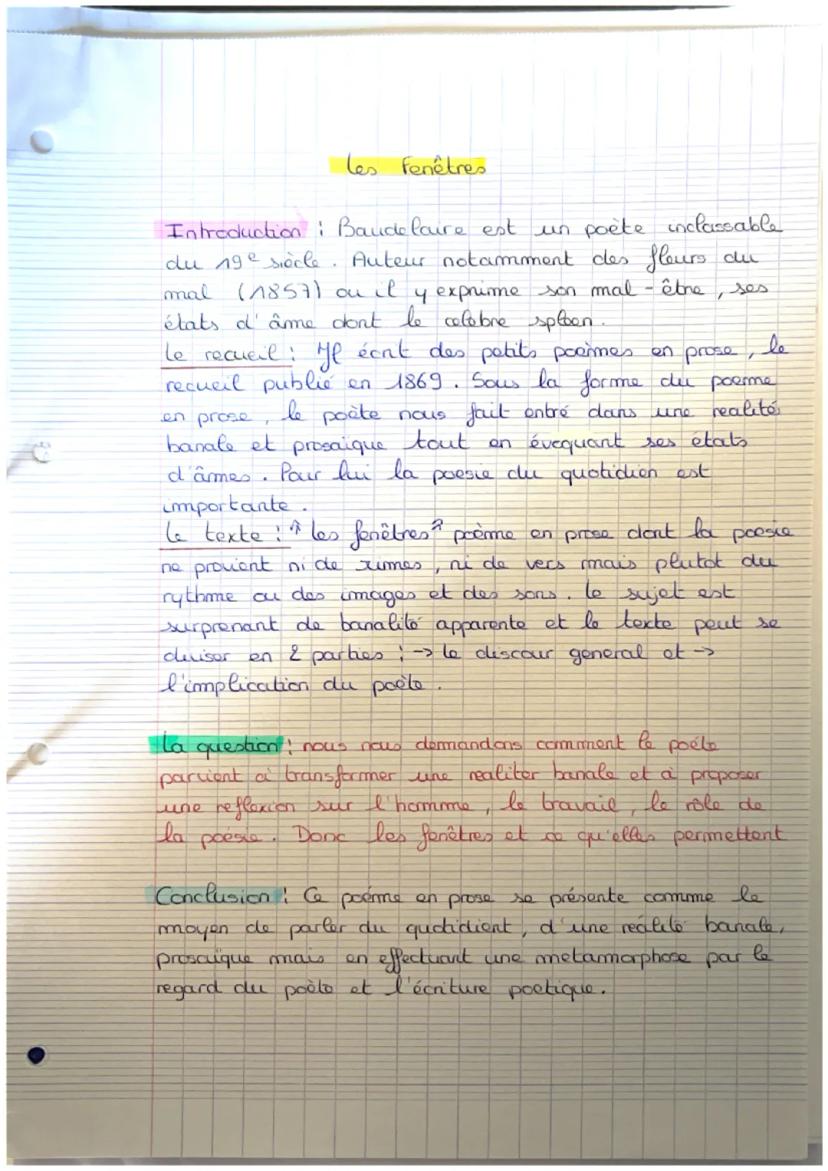 les fenêtres
Introduction : Baudelaire est un poète inclassable
du 19e siècle. Auteur notamment des fleurs du
mal (1857) ou il y exprime son mal-être, ses
états d'âme dont le celebre spleen.
Le recueil : Il écrit des petits poèmes en prose, le
recueil publié en 1869. Sous la forme du poeme
en prose, le poète nous fait entré dans une realité
banale et prosaïque tout en évequant ses états
d'âmes. Pour lui la poesie du quotidien est
importante.
Le texte : "les fenêtres" poème en prose dont la poesie
ne provient ni de rimes, ni de vers mais plutot du
rythme ou des images et des sons. le sujet est
surprenant de banalité apparente et le texte peut se
diviser en 2 parties : -> le discour general et ->
l'implication du poète.
La question : nous nous demandons comment le poète
parvient à transformer une realiter banale et à proposer
une reflexion sur l'homme, le travail, le rôle de
la poésie. Donc les fenêtres et ce qu'elles permettent
Conclusion : Ce poéme en prose se présente comme le
moyen de parler du quotidient, d'une réalité banale,
prosaïque mais en effectuant une metamorphose par le
regard du poète et l'écriture poetique.